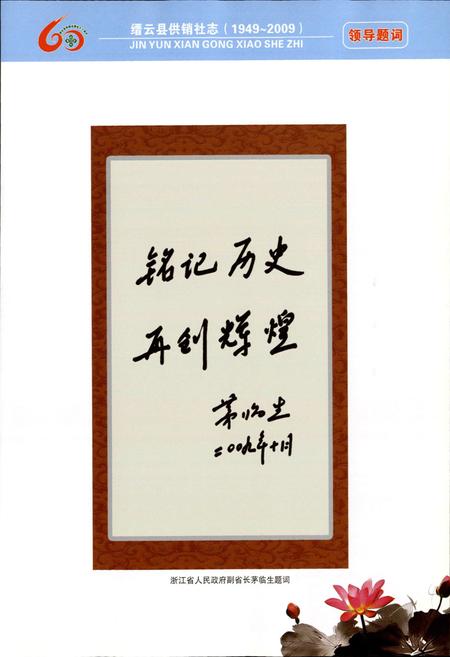 缙云县供销社志（1949~2009）
JIN YUN XIAN GONG XIAO SHE ZHI
领导题词
铭记历史
再创辉煌
茅临生
二〇〇九年十月
浙江省人民政府副省长茅临生题词